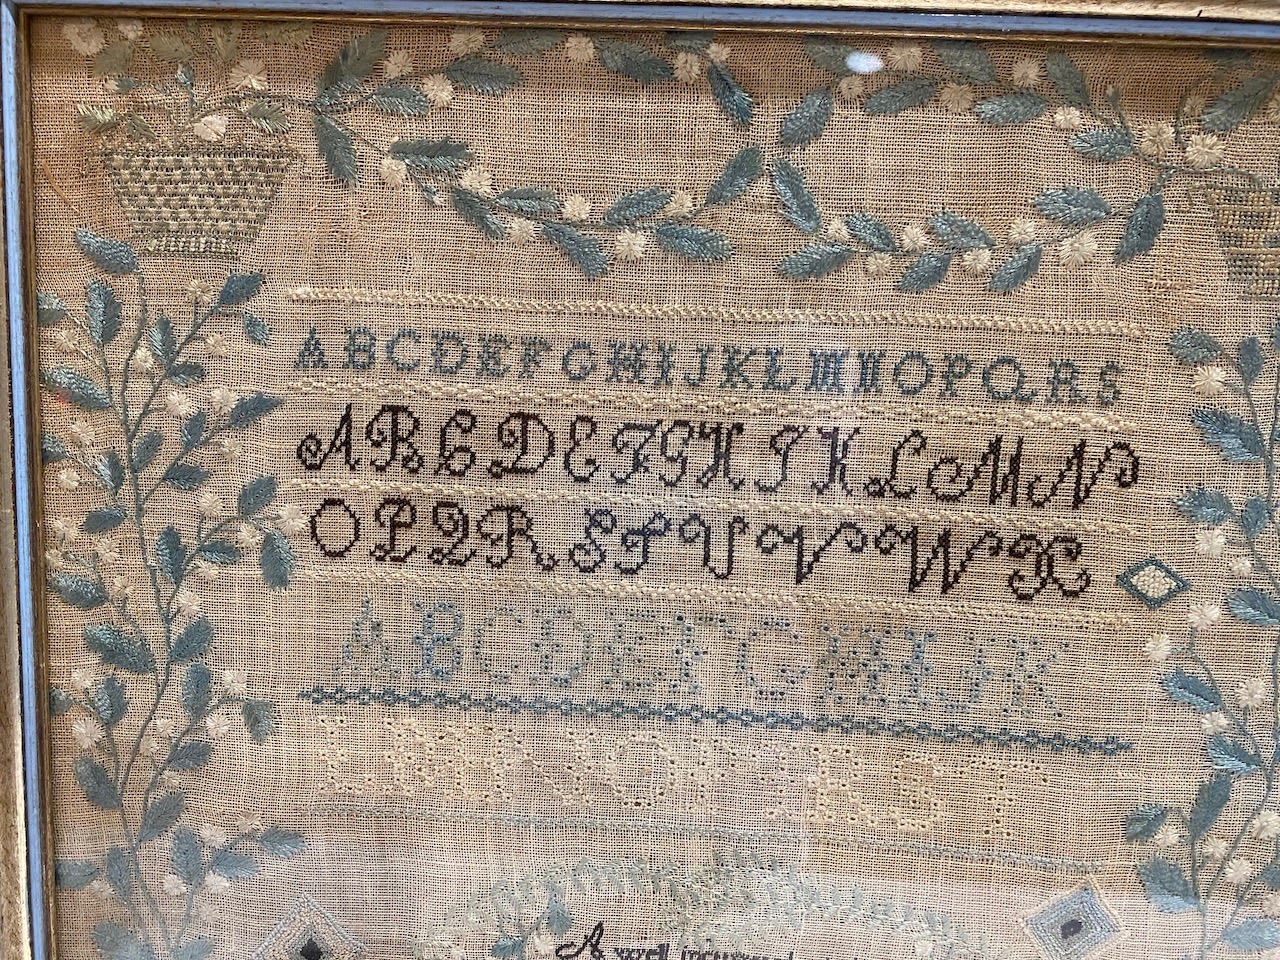 ABCDEFGHIJKLMNOPQRS
ABCDEFGHIKLMN
OPQRSTUVWX
ABCDEFGHIJK
LMNOPRST
A well